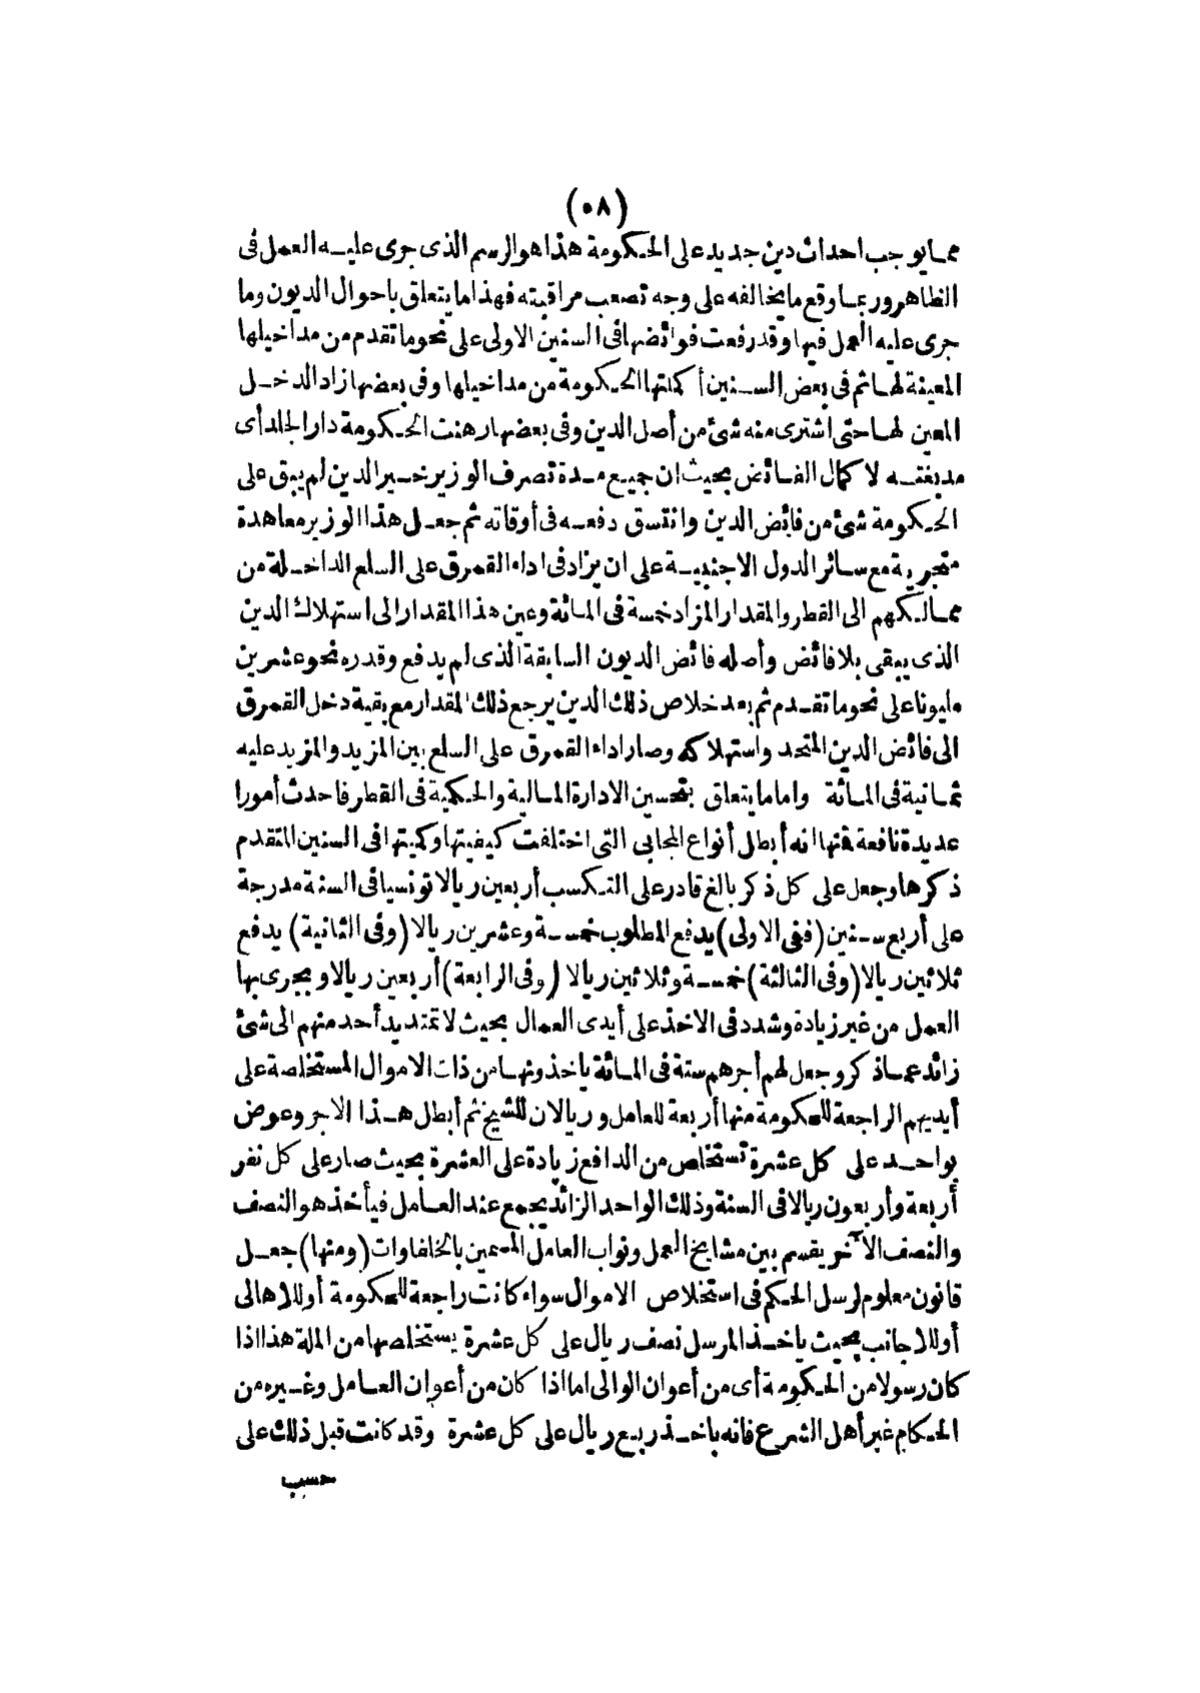 (٥٨)
مما يوجب احداث دين جديد على الحكومة هذا هو الرسم الذى جرى عليه العمل فى
الظاهر وربما وقع ما يخالفه على وجه تصعب مراقبته فهذا ما يتعلق باحوال الديون وما
جرى عليه العمل فيها وقد رفعت فوائضها فى السنين الاولى على نحو ما تقدم من مداخيلها
المعينة لها ثم فى بعض السنين أكملتها الحكومة من مداخيلها وفى بعضها زاد الدخل
المعين لها حتى اشترى منه شئ من أصل الدين وفى بعضها رهنت الحكومة دار الجلد أى
مدبغته لا كمال الفائض بحيث ان جميع مدة تصرف الوزير خير الدين لم يبق على
الحكومة شئ من فائض الدين وانتسق دفعه فى أوقاته ثم جعل هذا الوزير معاهدة
متجرية مع سائر الدول الاجنبية على ان يزاد فى اداء القمرق على السلع الداخلة من
ممالكهم الى القطر والمقدار المزاد خمسة فى المائة وعين هذا المقدار الى استهلاك الدين
الذى يبقى بلا فائض وأصله فائض الديون السابقة الذى لم يدفع وقدره نحو عشرين
مليونا على نحو ما تقدم ثم بعد خلاص ذلك الدين يرجع ذلك المقدار مع بقية دخل القمرق
الى فائض الدين المتحد واستهلاكه وصار اداء القمرق على السلع بين المزيد والمزيد عليه
ثمانية فى المائة واما ما يتعلق بتحسين الادارة المالية والحكمية فى القطر فاحدث أمورا
عديدة نافعة فمنها انه أبطل أنواع المجابى التى اختلفت كيفيتها وكميتها فى السنين المتقدم
ذكرها وجعل على كل ذكر بالغ قادر على التكسب أربعين ريالا تونسيا فى السنة مدرجة
على أربع سنين (ففى الاولى) يدفع المطلوب خمسة وعشرين ريالا (وفى الثانية) يدفع
ثلاثين ريالا (وفى الثالثة) خمسة وثلاثين ريالا (وفى الرابعة) أربعين ريالا ويجرى بها
العمل من غير زيادة وشدد فى الاخذ على أيدى العمال بحيث لا تمتد يد أحد منهم الى شئ
زائد عما ذكر وجعل لهم أجرهم ستة فى المائة ياخذونها من ذات الاموال المستخلصة على
أيديهم الراجعة للحكومة منها أربعة للعامل وريالان للشيخ ثم أبطل هذا الاجر وعوض
بواحد على كل عشرة تستخلص من الدافع زيادة على العشرة بحيث صار على كل نفر
أربعة وأربعون ريالا فى السنة وذلك الواحد الزائد يجمع عند العامل فيأخذ هو النصف
والنصف الآخر يقسم بين مشايخ العمل ونواب العامل المسمين بالخلفاوات (ومنها) جعل
قانون معلوم لرسل الحكم فى استخلاص الاموال سواء كانت راجعة للحكومة أو للاهالى
أو للاجانب بحيث ياخذ المرسل نصف ريال على كل عشرة يستخلصها من الملة هذا اذا
كان رسولا من الحكومة أى من أعوان الوالى اما اذا كان من أعوان العامل وغيره من
الحكام غير أهل الشرع فانه ياخذ ربع ريال على كل عشرة وقد كانت قبل ذلك على
حسب